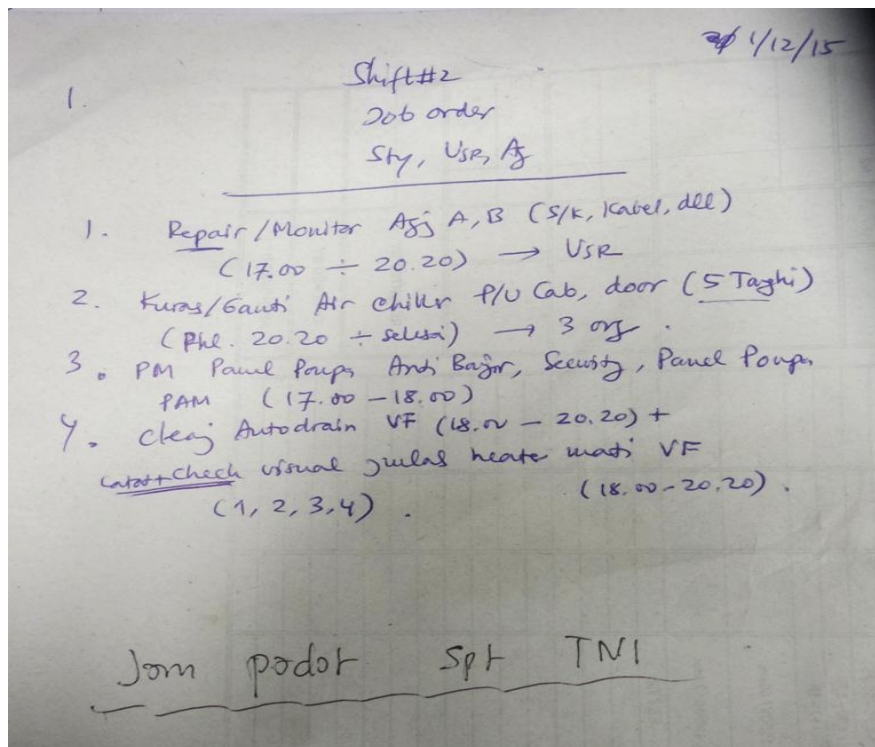 1/12/15
1. Shift #2
Job order
Sty, USR, Aj
1. Repair/Monitor A, B (S/K, Kabel, dll)
(17.00 ÷ 20.20) → USR
2. Kuras/Ganti Air chiller P/U Cab, door (5 Tangki)
(Pkl. 20.20 ÷ selesai) → 3 org.
3. PM Panel Pompa Anti Banjir, Security, Panel Pompa
PAM (17.00 - 18.00)
4. Autodrain VF (18.00 - 20.20) +
Catat+Check visual heater mati VF
(1, 2, 3, 4). (18.00-20.20).
Jom podot Spt TNI